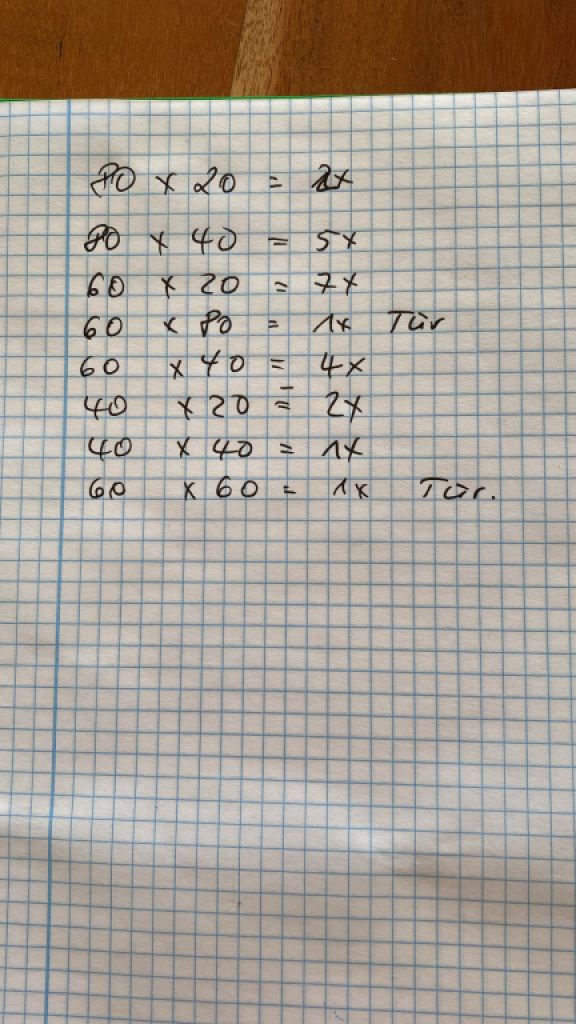 80 x 20 = 2x
80 x 40 = 5x
60 x 20 = 7x
60 x 80 = 1x Tür
60 x 40 = 4x
40 x 20 = 2x
40 x 40 = 1x
60 x 60 = 1x Tür.